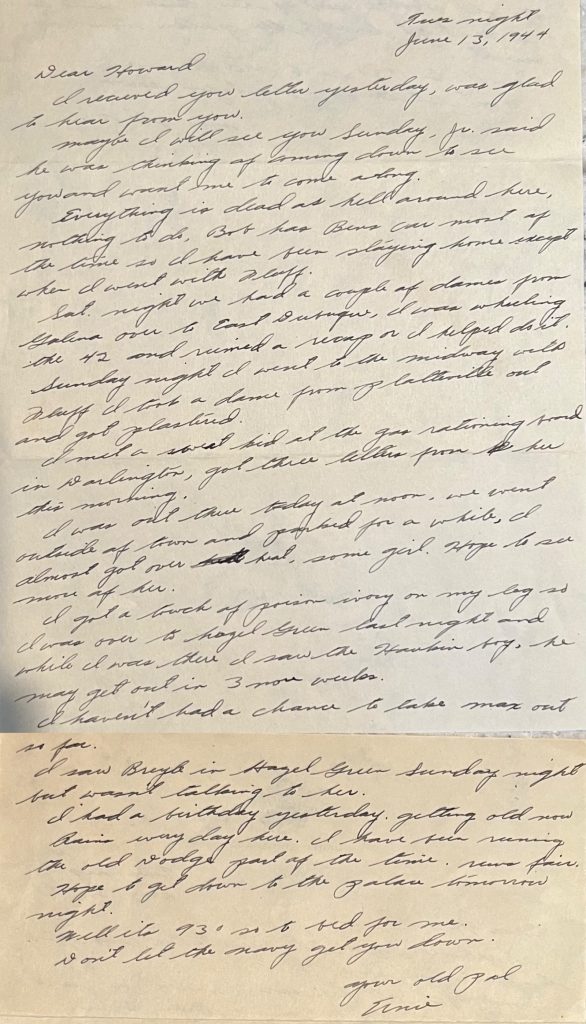 Tues night
June 13, 1944
Dear Howard
I recieved you letter yesterday, was glad
to hear from you.
maybe I will see you Sunday, Jr. said
he was thinking of coming down to see
you and want me to come along.
Everything is dead as hell around here,
nothing to do, Bob has Bens car most of
the time so I have been staying home except
when I went with Fluff.
Sat. night we had a couple of dames from
Galena over to East Dubuque, I was wheeling
the 42 and ruined a recap or I helped do it.
Sunday night I went to the midway with
Fluff I took a dame from Platteville out
and got plastered.
I met a sweat kid at the gas rationing board
in Darlington, got three letters from her
this morning.
I was out there today at noon, we went
outside of town and parked for a while, I
almost got over heat, some girl. Hope to see
more of her.
I got a touch of poison ivory on my leg so
I was over to hazel Green last night and
while I was there I saw the Hawkin boy, he
may get out in 3 more weeks.
I haven't had a chance to take max out
so far.
I saw in Hazel Green Sunday night
but wasn't talking to her.
I had a birthday yesterday. getting old now
Rains every day here. I have been running
the old Dodge part of the time. runs fair.
Hope to get down to the palace tomorrow
night.
Well its 930 so to bed for me.
Don't let the navy get you down.
your old pal
Ernie